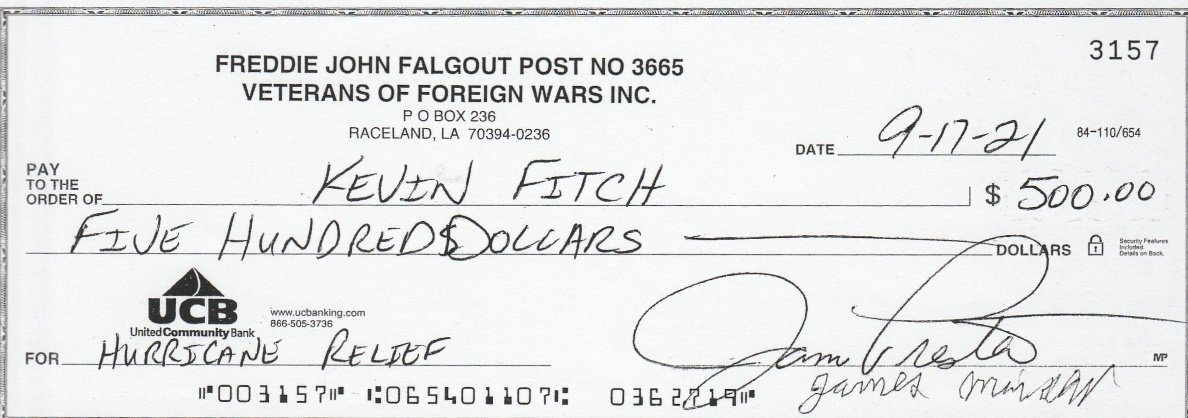 3157
FREDDIE JOHN FALGOUT POST NO 3665
VETERANS OF FOREIGN WARS INC.
P O BOX 236
RACELAND, LA 70394-0236
DATE 9-17-21 84-110/654
PAY
TO THE
ORDER OF KEVIN FITCH $ 500.00
FIVE HUNDRED DOLLARS DOLLARS
Security Features
Included.
Details on Back.
UCB
United Community Bank
www.ucbanking.com
866-505-3736
FOR HURRICANE RELIEF
MP
James